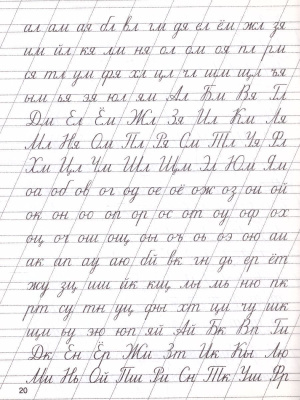 ал ам ая бл вл гм дя ел ём жл зя
им йл кя лм ня ол ом оя пл рм
ся тл ум фя хл цл чл шм щл ъя
ым ья эя юл ям Ал Бм Вя Гл
Дм Ел Ём Жл Зя Ил Км Ля
Мл Ня Ом Пл Ря См Тл Уя Рл
Хм Цл Чм Шл Щм Эл Юм Ям
оа об ов ог од ое оё ож оз ои ой
ок он оо оп ор ос от оу оф ох
оц оч ош ощ оы оъ оь оэ ою аи
ак ап ау аю бй вк гн дь ер ёт
жу зц иш йк кщ лы мь ню пк
рт су тн уц фы хт ци чу шк
щи ьу эю юп яй Ай Бк Вп Ги
Дк Ен Ёр Жи Зт Ик Кы Лю
Ми Нь Ой Пш Ри Сн Тк Уш Фр
20